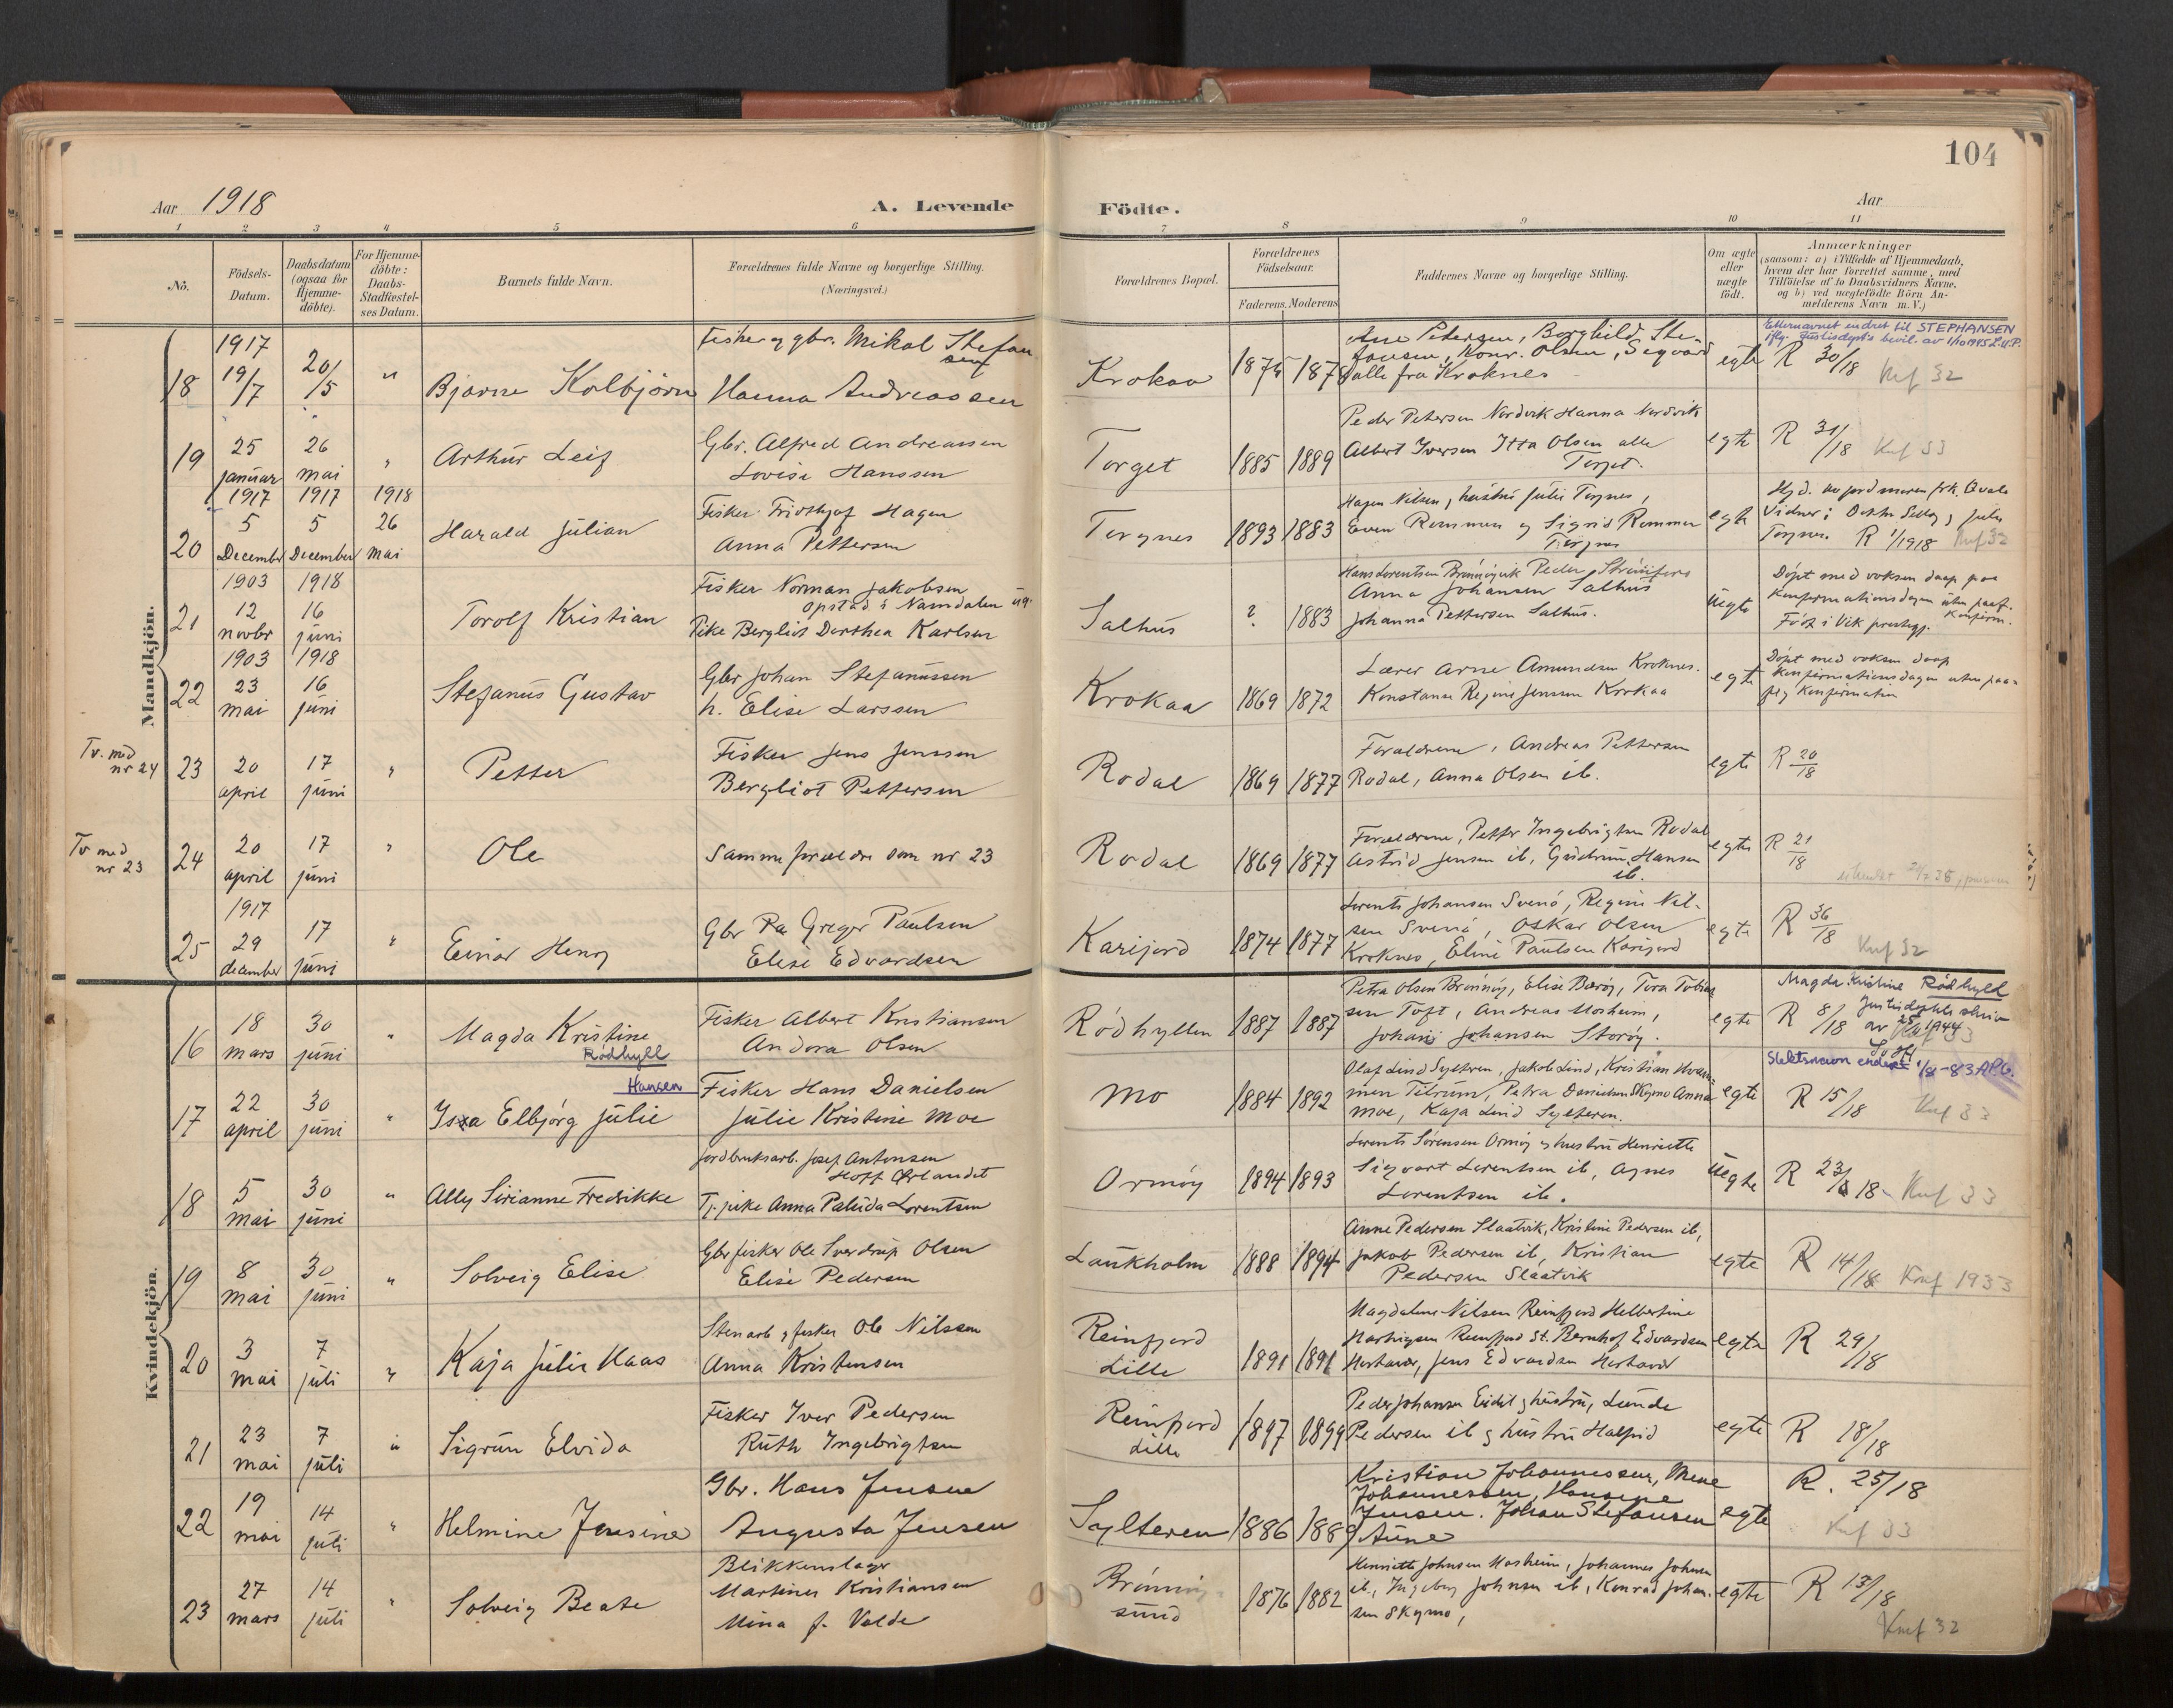 104
Aar 1918
A. Levende
Födte.
Aar
1 2 3 4 5 6 7 8 9 10 11
No.
Födsels-Datum.
Daabsdatum (ogsaa for Hjemme-döbte).
For Hjemme-döbte: Daabs-Stadfæstel-ses Datum.
Barnets fulde Navn.
Forældrenes fulde Navne og borgerlige Stilling.
(Næringsvei.)
Forældrenes Bopæl.
Forældrenes Födselsaar.
Faderens. Moderens
Faddernes Navne og borgerlige Stilling.
Om ægte eller uægte födt.
Anmærkninger
(saasom: a) i Tilfælde af Hjemmedaab, hvem der har forrettet samme, med Tilföielse af to Daabsvidners Navne, og b) ved uægtefödte Börn Anmelderens Navn m. V.)
Mandkjön.
18
1917
19/7
20/5
"
Bjarne Kolbjörn
Fisker og gbr. Mikal Stefansen
Hanna Andreassen
Krokaa
1875
Ane Petersen, Borghild Ste-
fansen, Konr. Olsen, Sigvard
alle fra Kroknes
egte
Etternavnet endret til STEPHANSEN
R 30/18
Knf 32
19
25 januar
26 mai
"
Arthur Leif
Gbr. Alfred Andreassen
Lovise Hanssen
Torget
1885 1889
Peder Petersen Nordvik Hanna Nordvik
Albert Iversen Itta Olsen alle
Torget.
egte
R 31/18
Knf 33
20
1917 1917 1918
5 December
5 December
26 mai
Harald Julian
Fisker Fridthjof Hagen
Anna Pettersen
Torgnes
1893 1883
Hagen Nilsen, hustru Julie Torgnes,
Even Remmen og Sigrid Remmen
Torgnes
egte
Hjd. av jordmoren frk. Qvale
Torgnes. R 1/1918
Knf 32
21
1903 1918
12 novbr
16 juni
Torolf Kristian
Fisker Norman Jakobsen
Opstad i Namdalen ug.
Pike Bergliot Dorthea Karlsen
Salhus
? 1883
Anna Johansen Salhus
Johanna Pettersen Salhus.
Uegte
Döpt med voksen daap paa
Konfirmationsdagen uten paaf.
Konfirm.
Född i Vik prestegj.
22
1903 1918
23 mai
16 juni
Stefanus Gustav
Gbr Johan Stefanussen
h. Elise Larssen
Krokaa
1869 1872
Lærer Arne Amundsen Kroknes.
Konstanse Regine Jensen Krokaa
egte
Döpt med voksen daap
Konfirmationsdagen uten paa-
fig Konfirmation
Tv. med nr 24
23
20 april
17 juni
"
Petter
Fisker Jens Jenssen
Bergliot Pettersen
Rodal
1869 1877
Forældrene, Andreas Pettersen
Rodal, Anna Olsen ib.
egte
R 20/18
Tv med nr 23
24
20 april
17 juni
"
Ole
Samme forældre som nr 23
Rodal
1869 1877
Forældrene, Petter Ingebrigtsen Rodal
Astrid Jensen ib, Gudrun Hansen
ib.
egte
R 21/18
25
1917
29 december
17 juni
"
Einar Henry
Gbr Pa Greger Paulsen
Elise Edvardsen
Karijord
1874 1877
Lorents Johansen Svenö, Regine Nil-
sen Svenö, Oskar Olsen
Kroknes, Eline Paulsen Karijord
egte
R 36/18
Knf 32
Kvindekjön.
16
18 mars
30 juni
"
Magda Kristine
Rödhyll
Fisker Albert Kristiansen
Andora Olsen
Rödhyllen
1887 1887
Petra Olsen Brönnöy, Elise Bærøy, Tora Tobias
sen Toft, Andreas Mosheim,
Johan Johansen Storöy.
egte
Magda Kristine Rödhyll
R 8/18
17
22 april
30 juni
"
Hansen
Isxa Elbjörg Julie
Fisker Hans Danielsen
Julie Kristine Moe
Mo
1884 1892
Olaf Lind Sylteren, Jakob Lind, Kristian
men Tilrum, Petra Danielsen Skjmo Anna
Moe, Kaja Lind Sylteren.
egte
Slektsnavn endret 1/8-83 APG.
R 15/18
Knf 33
18
5 mai
30 juni
"
Ally Sirianne Fredrikke
Jordbruksarb. Josef Antonsen
Hoff Ørlandet
Tj. pike Anna Palida Lorentsen
Ormöy
1894 1893
Lorents Sörensen Ormöy og hustru Henriette
Sigvart Lorentsen ib, Agnes
Lorentsen ib.
Uegte
R 23/18
Knf 33
19
8 mai
30 juni
"
Solveig Elise
Gbr fisker Ole Sverdrup Olsen
Elise Pedersen
Laukholm
1888 1894
Anne Pedersen Slaatvik, Kristine Pedersen ib,
Jakob Pedersen ib, Kristian
Pedersen Slaatvik
egte
R 14/18
Knf 1933
20
3 mai
7 juli
"
Kaja Julie Haas
Stenarb og fisker Ole Nilssen
Anna Kristensen
Reinfjord Lille
1891 1891
Magdalene Nilsen Reinfjord Helbertine
Hartvigsen Reinfjord St. Bernhof Edvardsen
Hortavær, Jens Edvardsen Hortavær
egte
R 29/18
21
23 mai
7 juli
"
Sigrun Elvida
Fisker Iver Pedersen
Ruth Ingebrigtsen
Reinfjord Lille
1897 1899
Peder Johansen Eidet og hustru, Lunde
Pedersen ib og hustru Halfrid
egte
R 18/18
22
19 mai
14 juli
"
Helmine Jensine
Gbr. Hans Jensen
Augusta Jensen
Sylteren
1886 1889
Kristian Johannessen, Mene
Johannessen, Hansine
Jensen. Johan Stefansen
Aune
egte
R. 25/18
Knf 33
23
27 mars
14 juli
"
Solveig Beate
Blikkenslager
Martinus Kristiansen
Mina f. Volde
Brönnöysund
1876 1882
Henriette Johnsen Mosheim, Johannes Johnsen
ib, Ingeborg Johnsen ib, Konrad Johan-
sen Skjmo,
egte
R 13/18
Knf 32